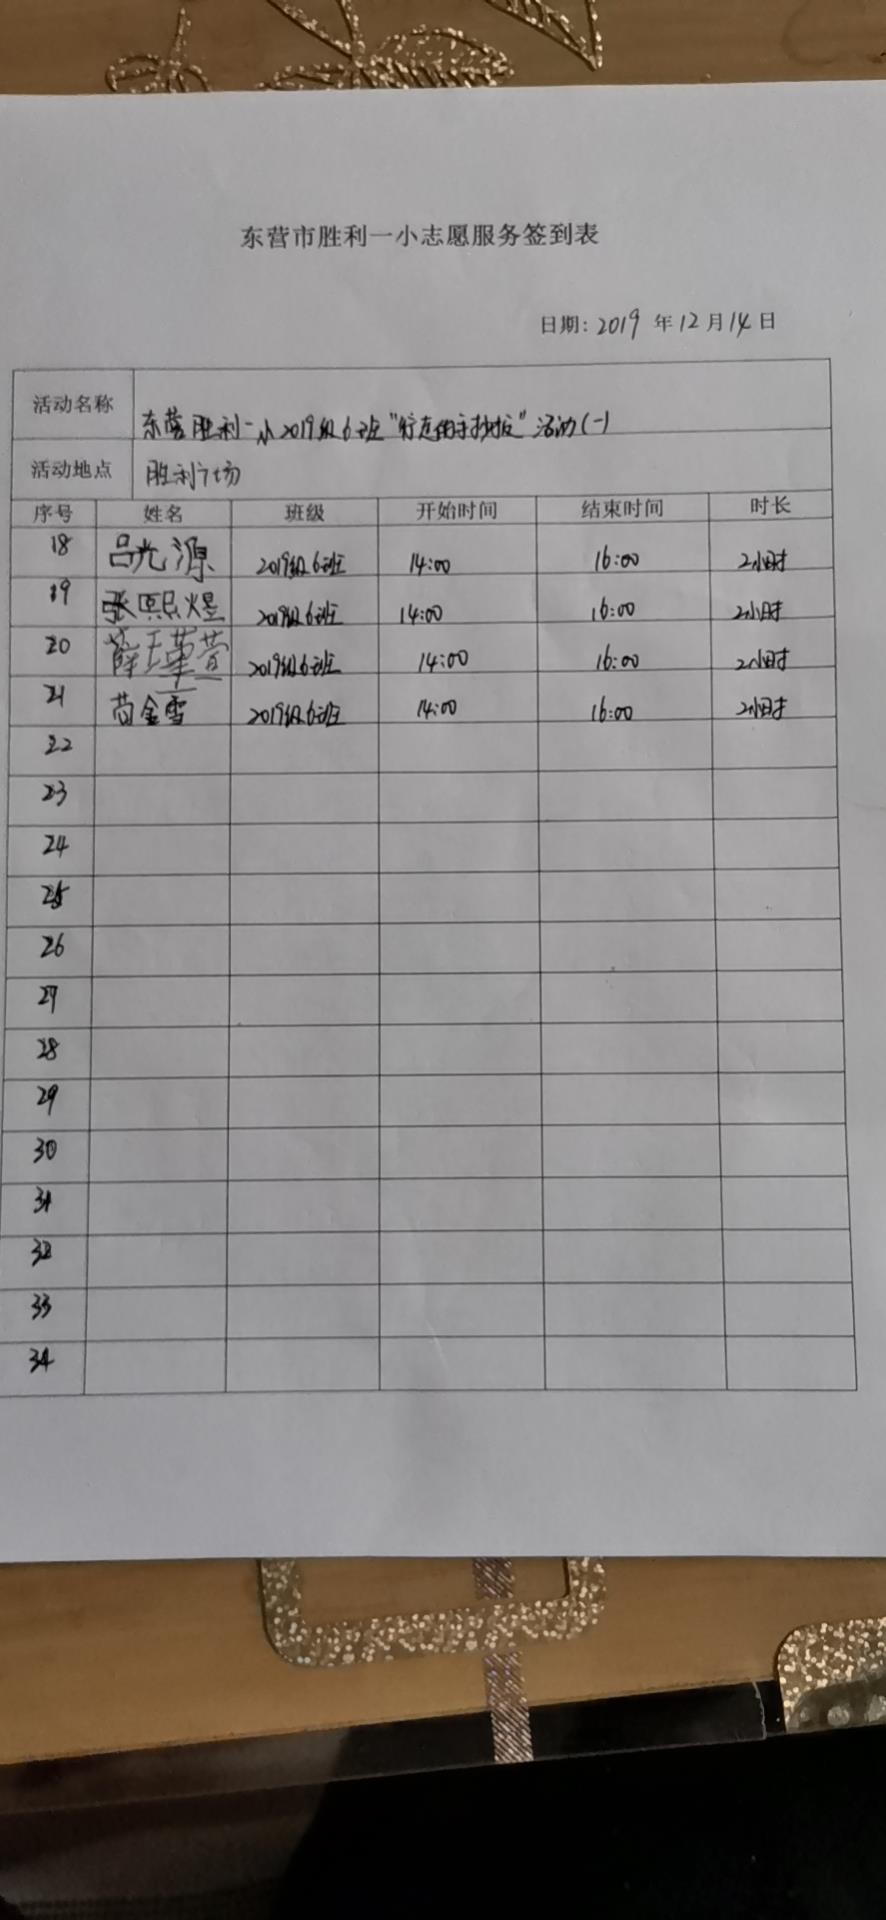 东营市胜利一小志愿服务签到表
日期: 2019 年 12 月 14 日
活动名称 东营胜利一小2019级6班“行走的手抄报”活动(一)
活动地点 胜利广场
序号 姓名 班级 开始时间 结束时间 时长
18 吕光源 2019级6班 14:00 16:00 2小时
19 张熙煜 2019级6班 14:00 16:00 2小时
20 薛王菫萱 2019级6班 14:00 16:00 2小时
21 苗金雪 2019级6班 14:00 16:00 2小时
22
23
24
25
26
27
28
29
30
31
32
33
34